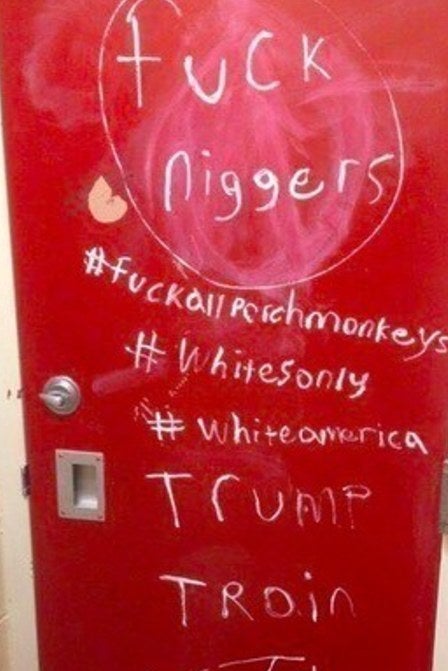 fuck
niggers
#fuckallporchmonkeys
# Whitesonly
# whiteamerica
TRUMP
TRain